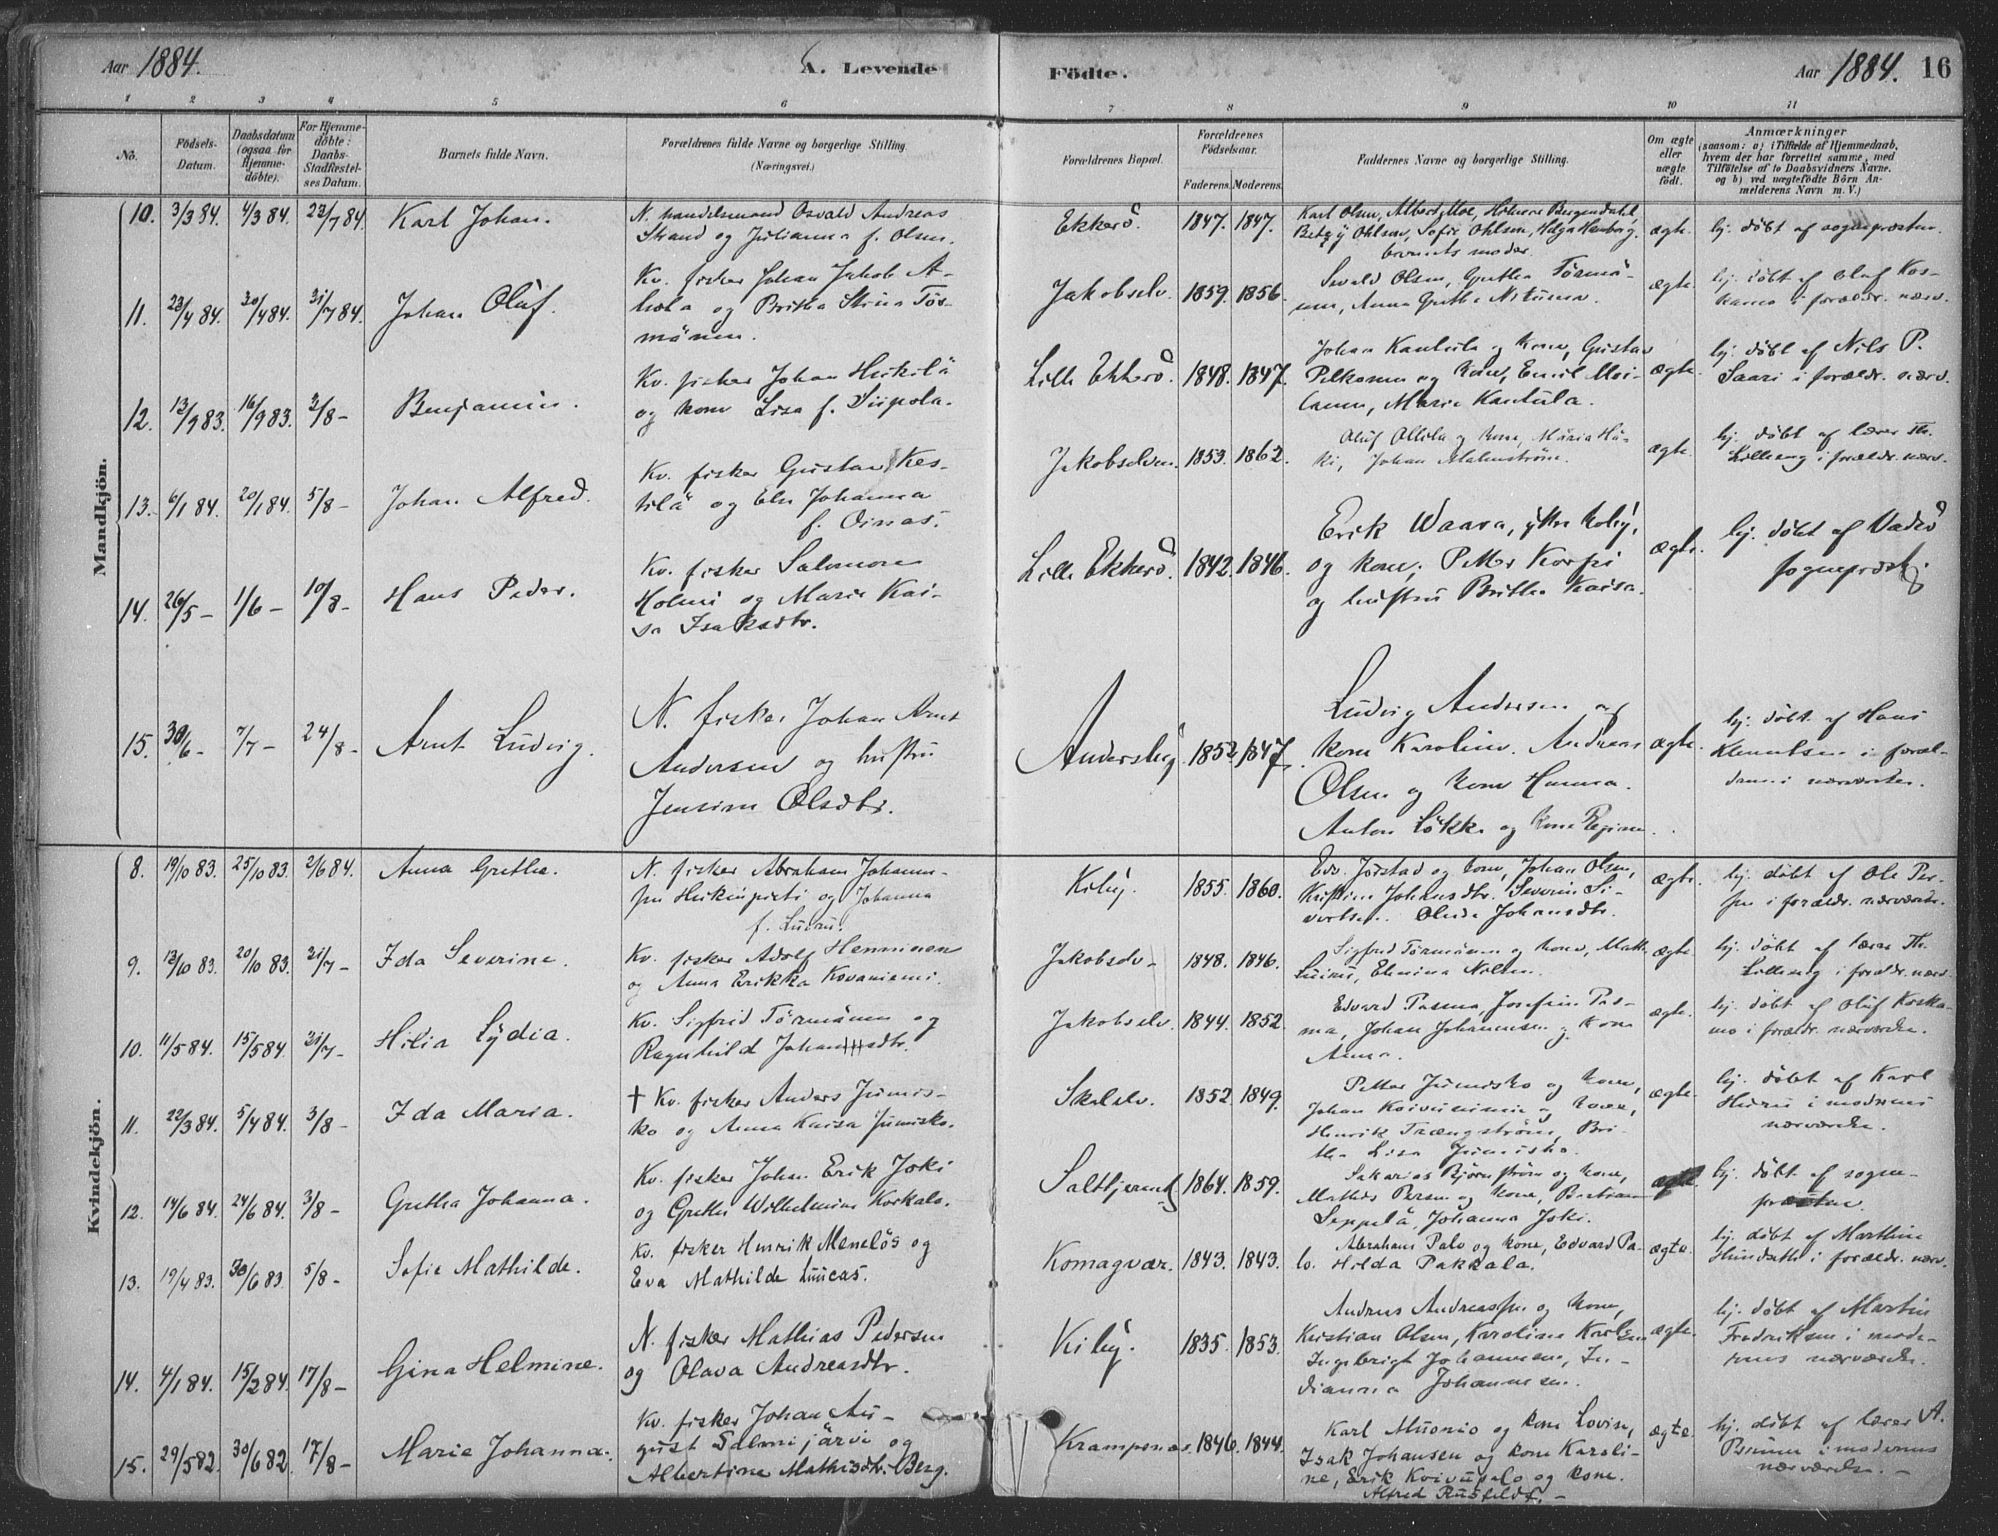 Aar 1884. A. Levende Födte. Aar 1884. 16
1 2 3 4 5 6 7 8 9 10 11
No. Födsels-Datum. Daabsdatum (ogsaa for Hjemme-döbte). For Hjemme-döbte: Daabs-Stadfæstel-ses Datum. Barnets fulde Navn. Forældrenes fulde Navne og borgerlige Stilling. (Næringsvei.) Forældrenes Bopæl. Forældrenes Födselsaar. Faderens. Moderens. Faddernes Navne og borgerlige Stilling. Om ægte eller uægte födt. Anmærkninger (saasom: a) i Tilfælde af Hjemmedaab, hvem der har forrettet samme, med Tilföielse af to Daabsvidners Navne, og b) ved uægtefödte Börn An-melderens Navn m. V.)
Mandkjön.
10. 3/3 84. 4/3 84. 22/7 84. Karl Johan. N. handelsmand Osvald Andreas
Strand og Julianna f. Olsen.
Ekkerö. 1847. 1847. Karl Olsen, Albert Moe,
Betzy Ohlsen, Sofie Ohlsen, Helga Hamborg.
barnets moder.
ægte. hj. döbt af sognepræsten.
11. 23/4 84. 30/4 84. 31/7 84. Johan Oluf. Kv. fisker Johan Jakob A-
hola og Britha Stina Tör-
mänen.
Jakobselv. 1859. 1856. Sevald Olsen, Gretha Törmä-
nen, Anna Gretha
ægte. hj. döbt af Oluf Kos-
kamo i forældr. nærv.
12. 13/9 83. 16/9 83. 3/8 - Benjamin. Kv. fisker Johan Heikilä
og kone Lisa f. Siipola.
Lille Ekkerö. 1848. 1847. Johan Kantula og kone, Gustav
Pelkonen og kone, Emil Moi-
lanen, Maria Kantula.
ægte. hj. döbt af Nils P.
Saari i forældr. nærv.
13. 6/1 84. 20/1 84. 5/8 - Johan Alfred. Kv. fisker Gustav Kes-
tilä og Else Johanna
f. Oinas.
Jakobselven. 1853. 1862. Oluf Ollila og kone, Maria
Johan Malmström.
ægte. hj. döbt af lærer Th.
Lilleeng i forældr. nærv.
14. 26/5 - 1/6 - 10/8 - Hans Peder. Kv. fisker Salomon
Holmi og Maria Kai-
sa Isaksdtr.
Lille Ekkerö. 1842. 1846. Erik Waara, ytre Kiby,
og kone, Petter Korpi
og hustru Britha Kaisa.
ægte. hj. döbt af Vadsö
sognepræst.
15. 30/6 - 7/7 - 24/8 - Arnt Ludvig. N. fisker Johan Arnt
Andersen og hustru
Jensine Olsdtr.
Andersby. 1852. 1847. Ludvig Andersen og
kone Karoline. Andreas
Olsen og kone Hanna.
Anton Lökke og kone Regine.
ægte. hj. döbt af Hans
Knudtsen i foræl-
drenes nærværelse.
Kvindekjön.
8. 19/10 83. 25/10 83. 2/6 84. Anna Gretha. N. fisker Abraham Johann-
sen Heikinpieti og Johanna
f.
Kiby. 1855. 1860. Edv. Jörstad og kone, Johan Olsen,
Kristine Johansdtr. Severin Si-
vertsen. Olide Johansdtr.
ægte. hj. döbt af Ole Per-
sen i forældr. nærværelse.
9. 13/10 83. 20/10 83. 31/7 - Ida Severine. Kv. fisker Adolf Henninen
og Anna Erikka Kovaniemi.
Jakobselv - 1848. 1846. Sigfred Törmänen og kone, Math.
Elmina Nilsen.
ægte. hj. döbt af lærer Th.
Lilleeng i forældr. nærv.
10. 11/5 84. 15/5 84. 31/7 - Hilia Lydia. Kv. Sigfrid Törmänen og
Ragnhild Johansdtr.
Jakobselv. 1844. 1852. Edvard Pasma, Josefine Pas-
ma, Johan Johannesen og kone
Anna.
ægte. hj. döbt af Oluf Koska-
mo i forældr. nærværelse.
11. 22/3 84. 5/4 84. 3/8 - Ida Maria. † Kv. fisker Anders Junis-
ko og Anna Kaisa Junisko.
Skelelv. 1852. 1849. Petter Junisko og kone,
Johan Koivuniemi og kone,
Henrik Trængström, Bri-
tha Lisa Junisko.
ægte. hj. döbt af Karl
i moderens
nærværelse.
12. 14/6 84. 24/6 84. 3/8 - Gretha Johanna. Kv. fisker Johan Erik Joki
og Gretha Wilhelmina Korkalo.
Saltfjernes 1864. 1859. Sakarias Björnström og kone,
Mathis Persen og kone, Bastian
Seppelä, Johanna Joki.
ægte. hj. döbt af sogne-
præsten.
13. 19/4 83. 30/6 83. 5/8 - Sofie Mathilde. Kv. fisker Henrik Meneläs og
Eva Mathilde Luucas.
Komagvær. 1843. 1843. Abraham Palo og kone, Edvard Pa-
lo. Hilda Pakkala.
ægte. hj. döbt af Marthin
i forældr. nærv.
14. 4/1 84. 15/2 84. 17/8 - Gina Helmine. N. fisker Mathias Pedersen
og Olava Andreasdtr.
Kiby. 1835. 1853. Andreas Andreassen og kone,
Kristian Olsen, Karoline Karlsen
Ingebrigt Johannesen, In-
dianna Johannesen.
ægte. hj. döbt af Martin
Fredriksen i mode-
rens nærværelse.
15. 29/5 82. 30/6 82. 17/8 - Marie Johanna. Kv. fisker Johan Au-
gust Salmijärvi og
Albertine Mathisdtr. Berg.
Krampenæs. 1846. 1844. Karl Muonio og kone Lovise,
Isak Johansen og kone Karoli-
ne, Erik Koivupalo og kone.
Alfred Rusfeldt. -
ægte. hj. döbt af lærer A.
i moderens
nærværelse. -